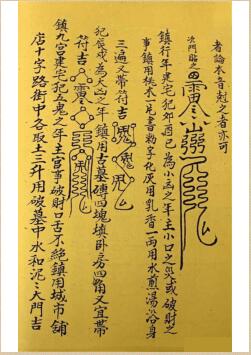 者論本音剋之者亦可
次門臨之
鎮行年建宅犯郊酉已為小凶之年主小口之災或破財之
事鎮用槐木一尺書物字化灰用乳香一兩用水煎湯浴身
三遍又帶符吉
犯辰戌為大凶之年鎮用古墓磚四塊填臥房四角又宜帶
符吉
鎮九宮建宅犯五鬼之年主官事破財口舌不絕鎮用城市舖
店十字路街中各取土三升用破墓中水和泥之大門吉